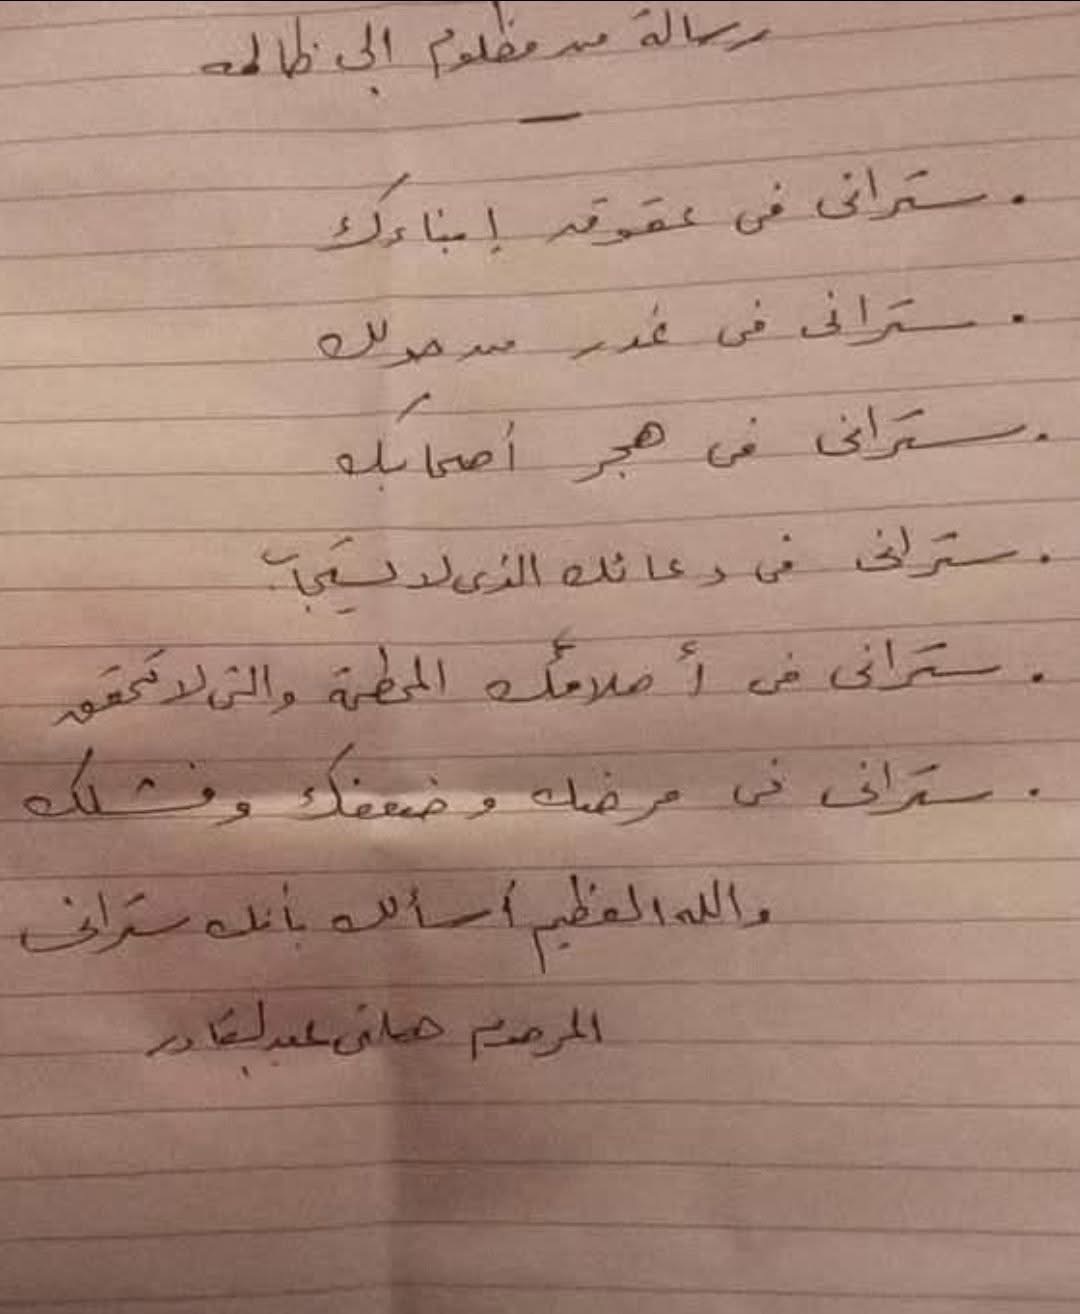 رسالة من مظلوم الى ظالمه
. سترانى فى عقوق إبناءك
. سترانى فى غدر من حولك
. سترانى فى هجر أصحابك
. سترانى فى دعائك الذى لا يستجاب
. سترانى فى أحلامك المحطمة والتى لا تتحقق
. سترانى فى مرضك وضعفك وفشلك
والله العظيم أسألك بأنك سترانى
المرحوم هانى عبد القادر